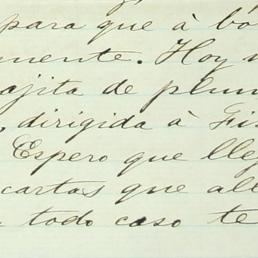 para que à bo
mente. Hoy
ajita de plum
, dirigida à Fis
Espero que lle
cartas que all
todo caso te